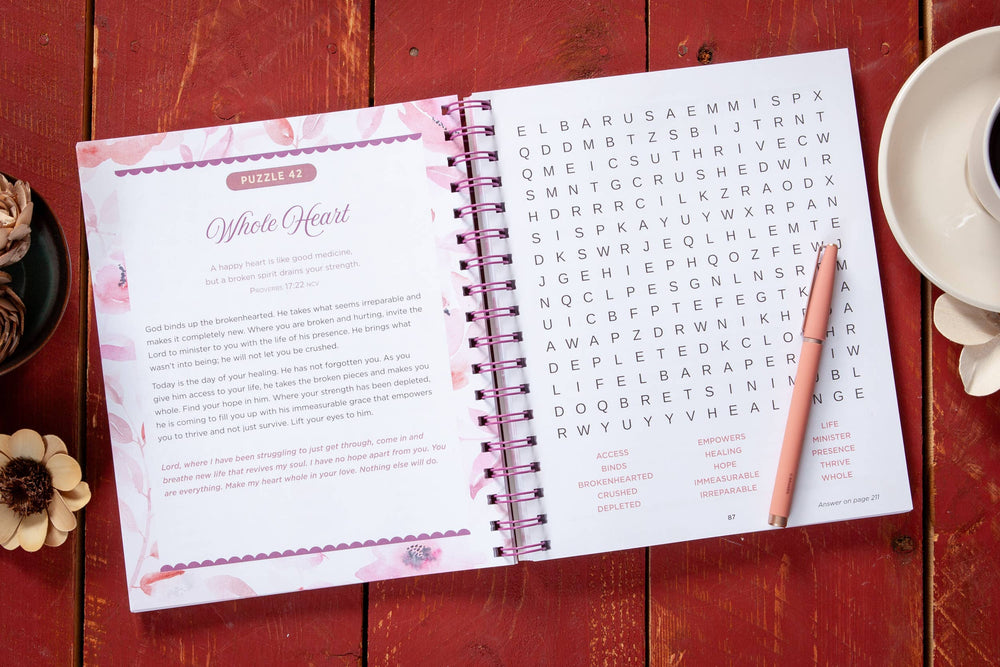 PUZZLE 42
Whole Heart
A happy heart is like good medicine,
but a broken spirit drains your strength.
PROVERBS 17:22 NCV
God binds up the brokenhearted. He takes what seems irreparable and
makes it completely new. Where you are broken and hurting, invite the
Lord to minister to you with the life of his presence. He brings what
wasn't into being; he will not let you be crushed.
Today is the day of your healing. He has not forgotten you. As you
give him access to your life, he takes the broken pieces and makes you
whole. Find your hope in him. Where your strength has been depleted,
he is coming to fill you up with his immeasurable grace that empowers
you to thrive and not just survive. Lift your eyes to him.
Lord, where I have been struggling to just get through, come in and
breathe new life that revives my soul. I have no hope apart from you. You
are everything. Make my heart whole in your love. Nothing else will do.
E L B A R U S A E M M I S P X
Q D D M B T Z S B I J T R N T
Q M E I C S U T H R I V E C W
S M N T G C R U S H E D W I R
H D R R R C I L K Z R A O D X
S I S P K A Y U Y W X R P A N
D K S W R J E Q L H L E M T E
J G E H I E P H Q O Z F E W J
N Q C L P E S G N L N S R M
U I C B F P T E F E G T K A
A W A P Z D R W N I K H A
D E P L E T E D K C L O H R
L I F E L B A R A P E R I W
D O Q B R E T S I N I M B L
R W Y U Y Y V H E A L N G E
ACCESS
BINDS
BROKENHEARTED
CRUSHED
DEPLETED
EMPOWERS
HEALING
HOPE
IMMEASURABLE
IRREPARABLE
LIFE
MINISTER
PRESENCE
THRIVE
WHOLE
87
Answer on page 211